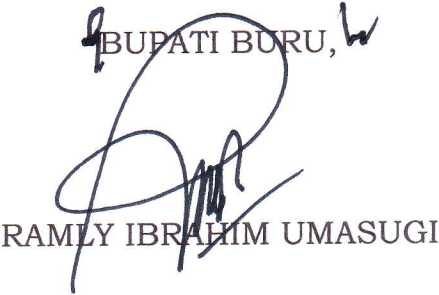 BUPATI BURU,
RAMLY IBRAHIM UMASUGI